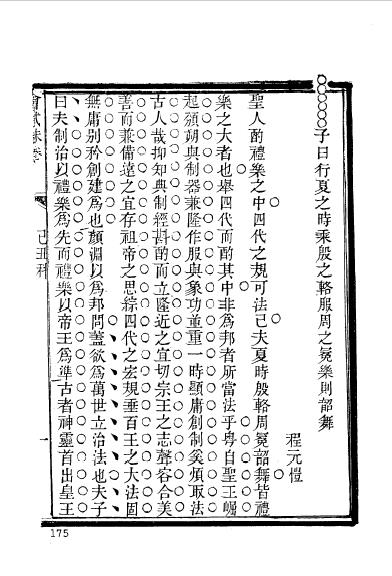 子曰行夏之時乘殷之輅服周之冕樂則韶舞
程元愷
聖人酌禮樂之中四代之規可法已夫夏時殷輅周冕韶舞皆禮
樂之大者也舉四代而酌其中非為邦者所當法乎粵自聖王崛
起頒朔與制器兼隆作服與象功並重一時顯庸創制奚煩取法
古人哉抑知典制經斟酌而立隆近之宜切宗王之志聲容合美
善而兼備遠之宜存祖帝之思綜四代之宏規垂百王之大法固
無庸別矜創建為也顏淵以為邦問蓋欲為萬世立治法也夫子
曰夫制治以禮樂為先而禮樂以帝王為準古者神靈首出皇王
會試硃卷
己丑科
一
175